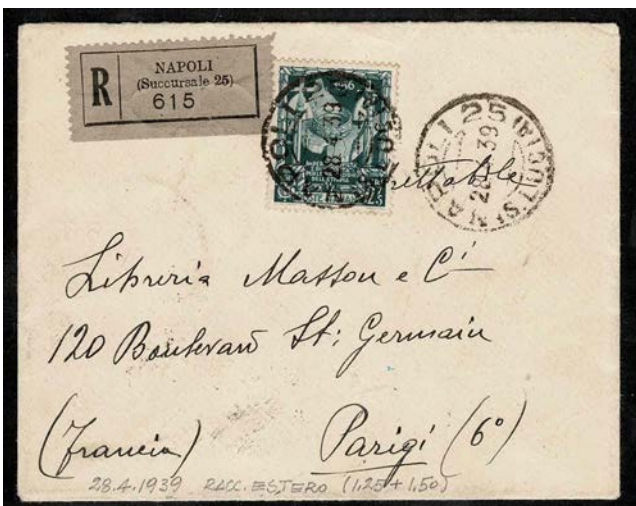 R
NAPOLI
(Succursale 25)
615
28.4.39
NAPOLI 25
28.4.39
Libreria Masson e Cⁱ
120 Boulevard St: Germain
(Francia) Parigi (6°)
28.4.1939 RACC. ESTERO (1,25+1,50)